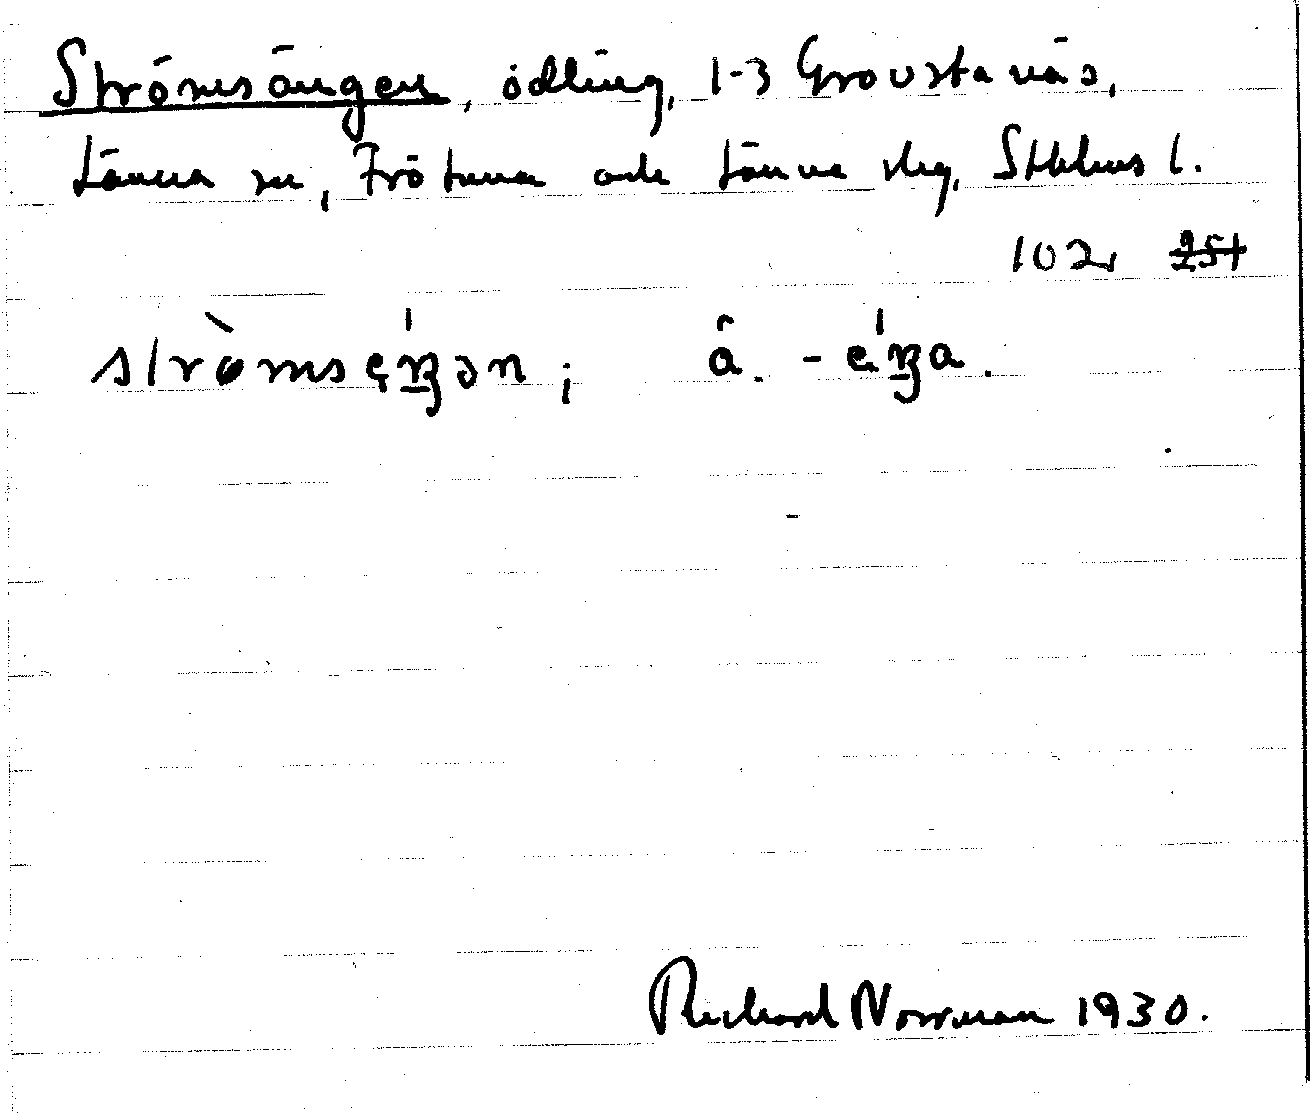 Strömsängen, ödling, 1-3 Grovstanäs,
Länna sn, Frötuna och Länna skg, Sthlms l.
102,
strömsęŋən; â. -ęŋa.
Richard Norrman 1930.